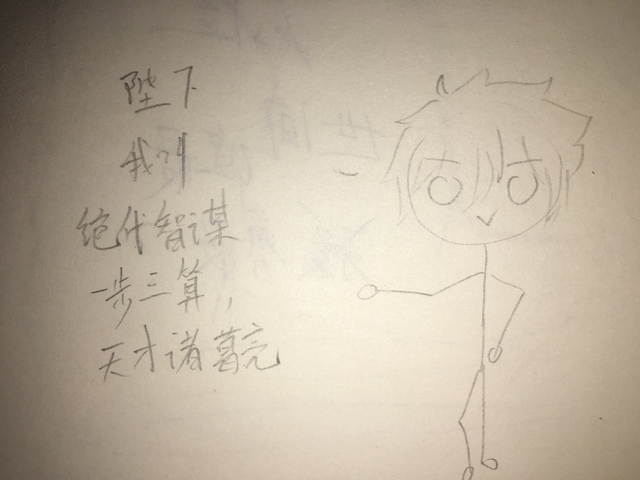 陛下
我叫
绝代智谋
一步三算，
天才诸葛亮